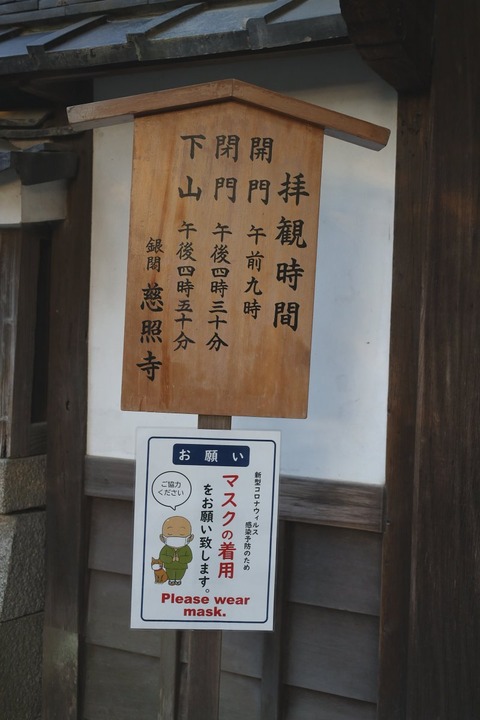 拝観時間
開門 午前九時
閉門 午後四時三十分
下山 午後四時五十分
銀閣 慈照寺
お願い
新型コロナウィルス
感染予防のため
マスクの着用
をお願い致します。
ご協力
ください
Please wear
mask.